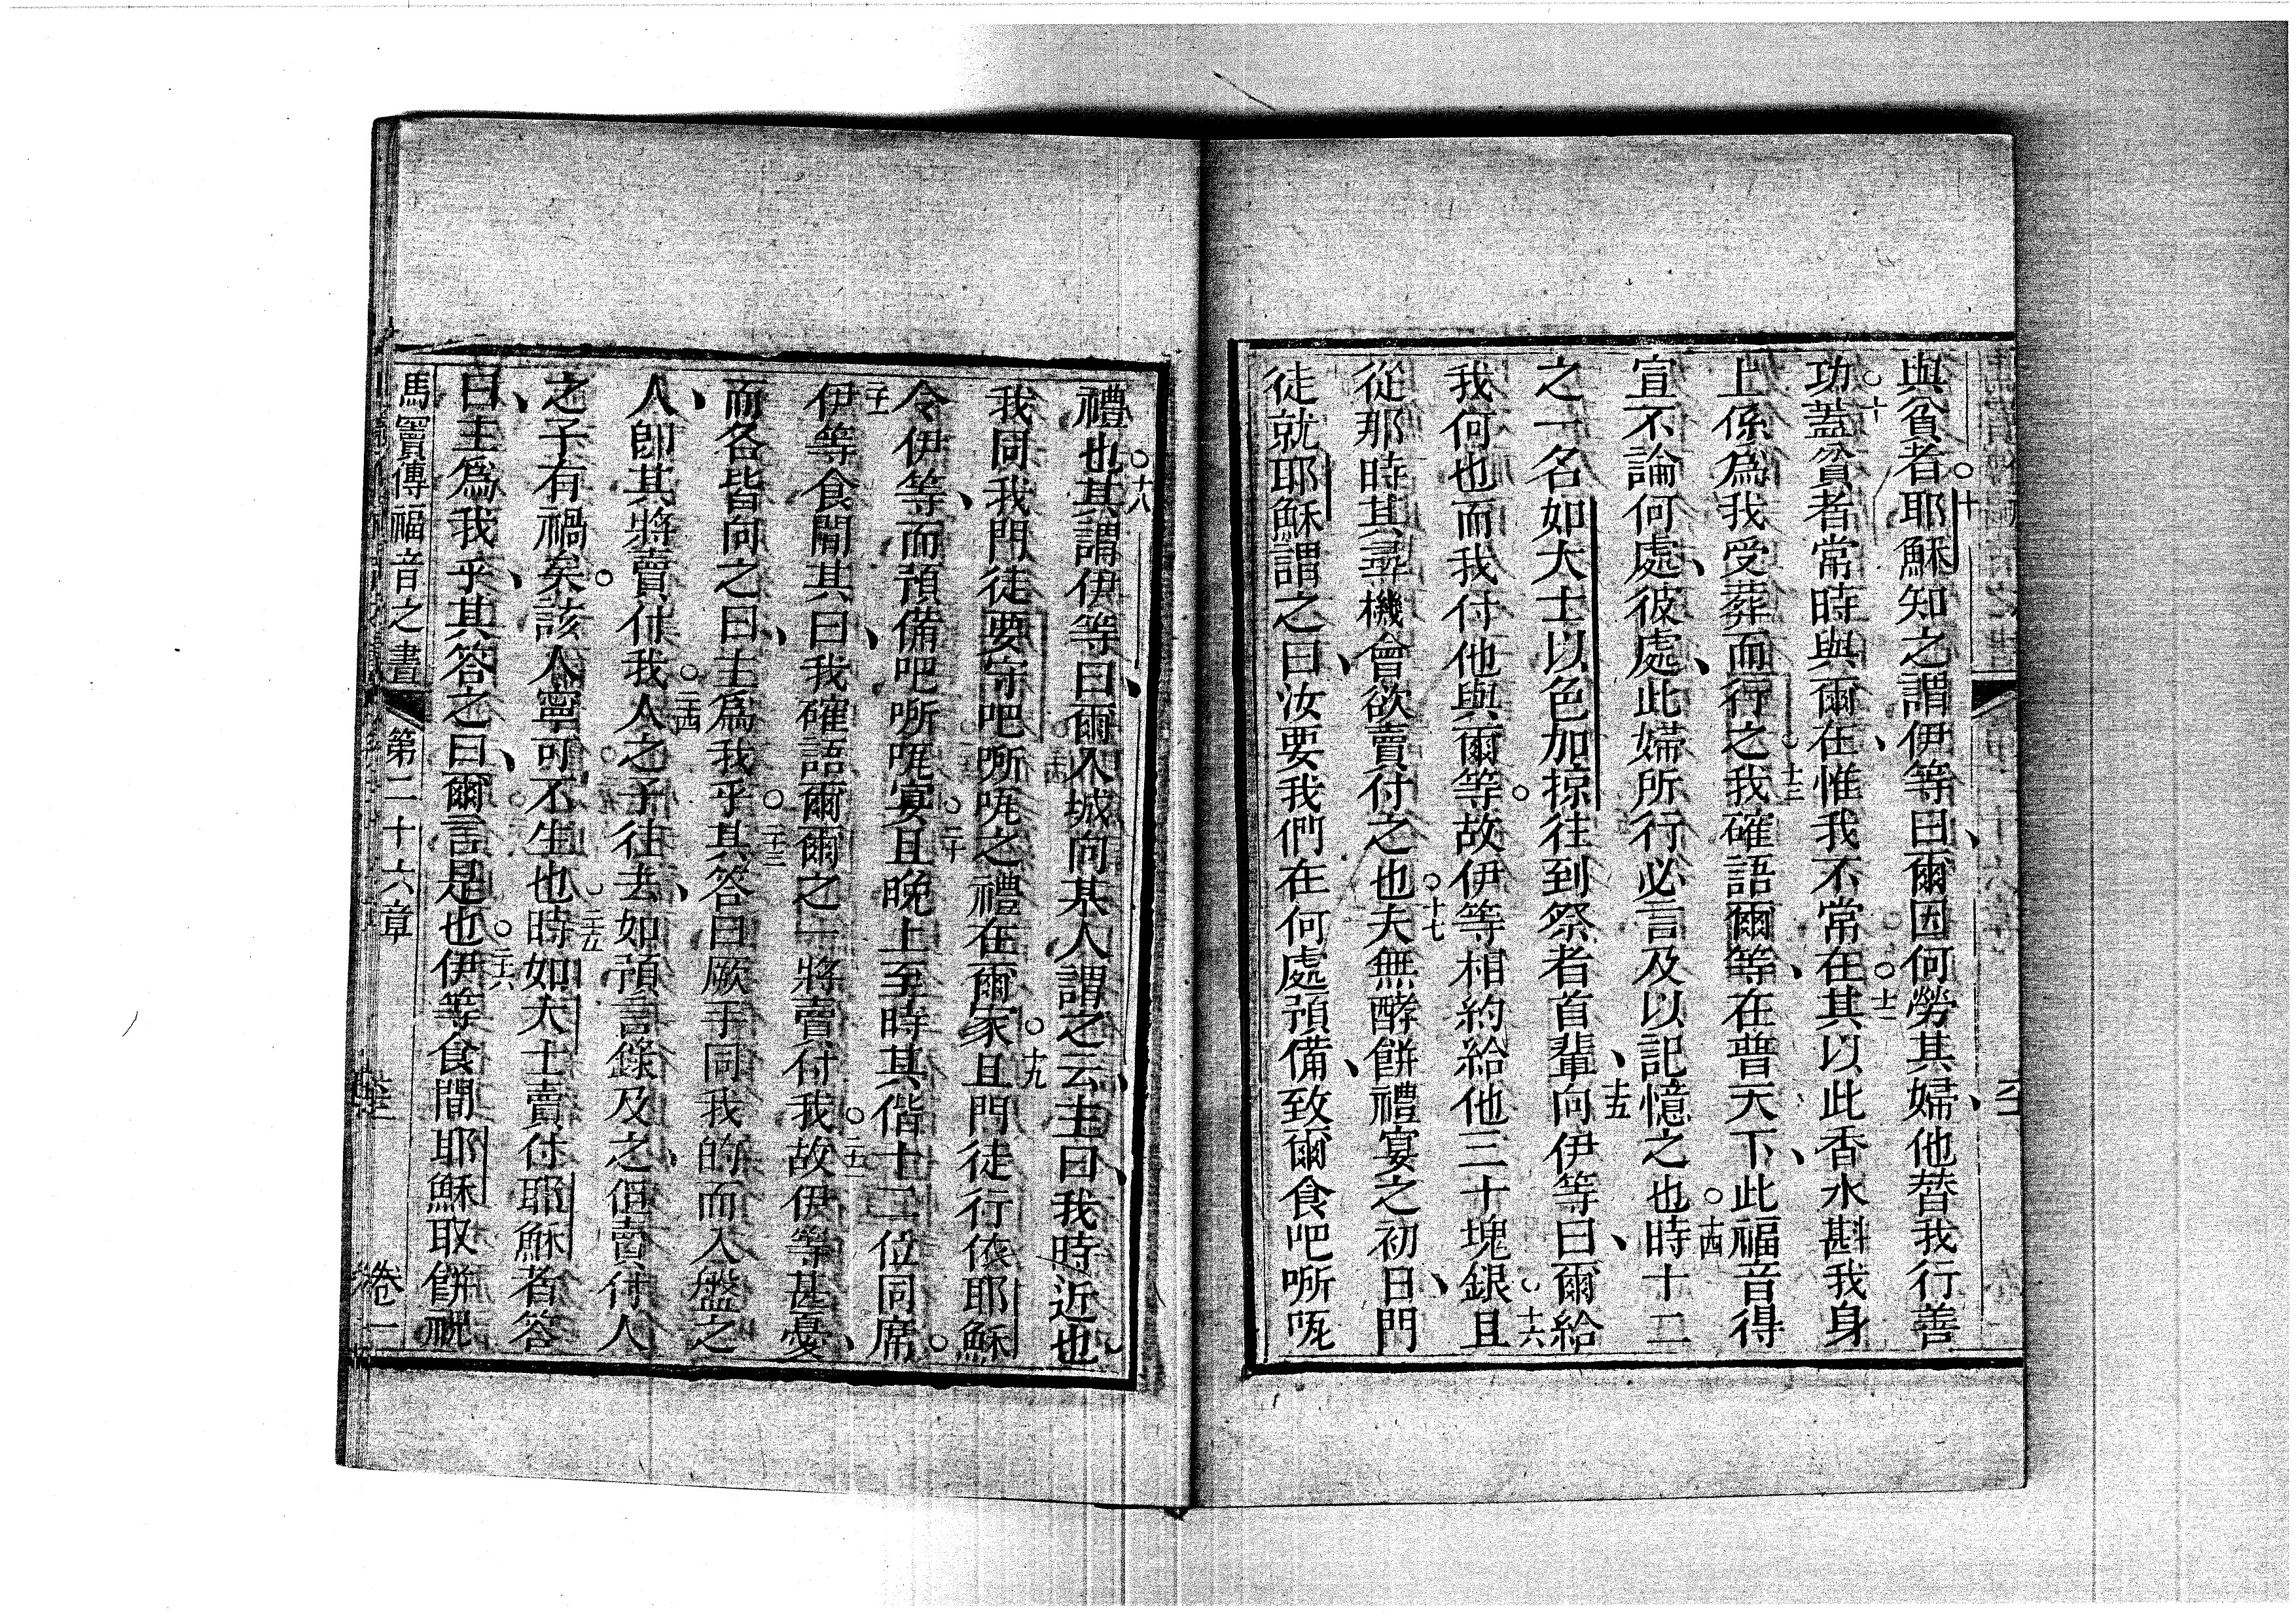 與貧者○十耶穌知之謂伊等曰、爾因何勞其婦、他替我行善
功○十蓋貧者常時與爾在、惟我不常在○十一其以此香水斟我身
上係為我受葬而行之○十三我確語爾等、在普天下、此福音得
宣不論何處、彼處、此婦所行必言及以記憶之也○十四時十二
之一名如大士以色加掠往到祭者首輩、十五向伊等曰、爾給
我何也而我付他與爾等○故伊等相約給他三十塊銀○十六且
從那時其尋機會欲賣付之也○十七夫無酵餅禮宴之初日、門
徒就耶穌謂之曰、汝要我們在何處預備、致爾食吧㗭𠰷
禮也○十八其謂伊等曰、爾入城向某人謂之云、主曰、我時近也
我同我門徒要守吧㗭𠰷之禮在爾家○十九且門徒行依耶穌
令伊等、而預備吧㗭𠰷宴○二十且晚上至時其偕十二位同席○
二十一伊等食間其曰、我確語爾爾之一將賣付我○二十二故伊等甚憂、
而各皆向之曰、主為我乎○二十三其答曰厥手同我的而入盤之
人、即其將賣付我○二十四人之子往去、如預言錄及之、但賣付人
之子有禍矣○該人寧可不生也○二十五時如大士賣付耶穌者答
曰、主為我乎、其答之曰、爾言是也○二十六伊等食間耶穌取餅祝
馬竇傳福音之書 第二十六章 卷一